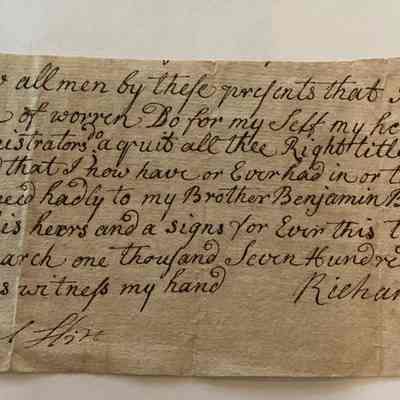 all men by these presents that I
of worren Do for my Self my he
istrators do aquit all thee Right title
d that I now have or Ever had in or t
eed hadly to my Brother Benjamin B
is heers and a signs for Ever this t
arch one thousand Seven Hundre
s witness my hand Richar